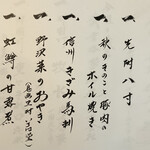 一、先附八寸
一、秋のきのこと豚肉の
ホイル焼き
一、信州きざみ鳥刺
一、野沢菜のおやき
一、虹鱒の甘露煮